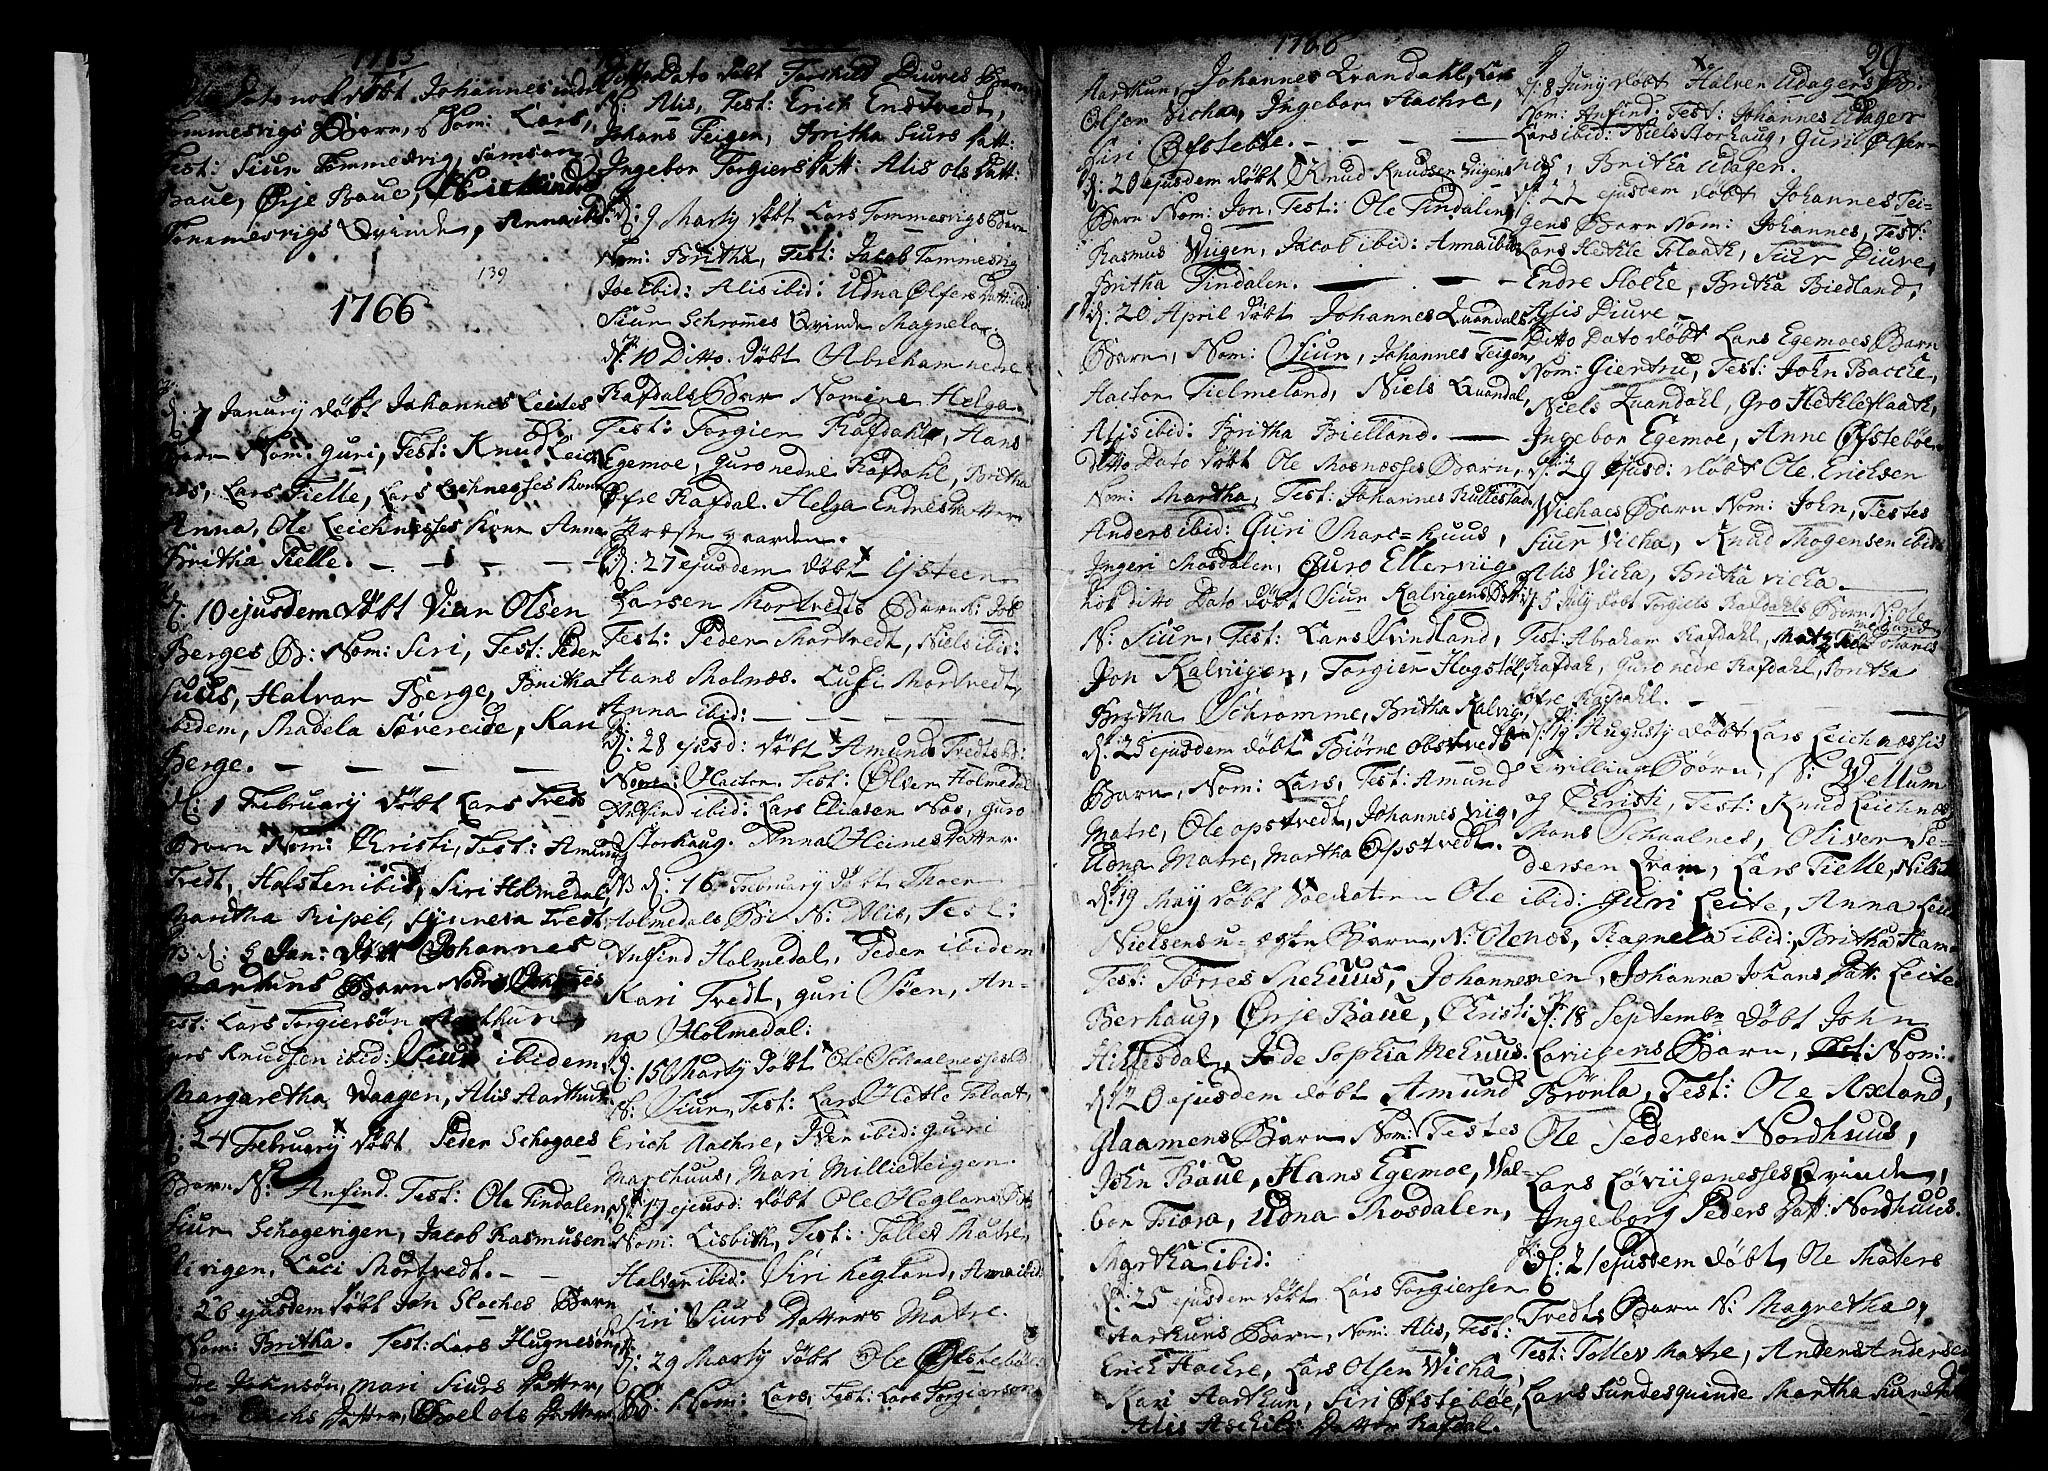 1765
Dato nok döbt Johannes indre
Tommesvigs Barn, Nom: Lars,
Test: Siur Tommesvig, Samson
Baue, Ørje Baue,
Tommesvigs Qvinde, Anna ibid:
139
1766
d: 7 January döbt Johannes Leites
Barn Nom: Guri, Test: Knud Leich
nes, Lars Tielle, Lars Leichnesses Kone
Anna, Ole Leichnesses Kone Anna
Britha Tielle.
d: 10 ejusdem döbt Vier Olsen
Berges B: Nom: Siri, Test: Peder
Huus, Halvor Berge, Britha
ibidem, Madela Sævereide, Kari
Berge.
d: 1 February döbt Lars Tveds
Barn Nom: Christi, Test: Amund
Tvedt, Holsten ibid, Siri Holmedal,
Maritha Ripel, Synneva Tvedt
NB d: 5 Jan: döbt Johannes
Aarthuns Barn Nom:
Test: Lars Torgiersön Aarthun,
Lars Knudsen ibid: Siur ibidem,
Margaretha Vaagen, Alis Aarthun
d: 24 February döbt Peder Schogaes
Barn N: Anfind. Test: Ole Tindalen,
Siur Schogevigen, Jacob Rasmusen
Elvigen, Luci Mortvedt.
d: 26 ejusdem döbt Jon Stoches Barn
Nom: Britha. Test: Lars Hugnesön,
Jahnsön, Mari Siurs Datter,
Guri Erichs Datter, Boel Ols Datter
Ditto Dato döbt Torchild Diuves Barn
N: Alis, Test: Erich Enstvedt,
Johans Teigen, Britha Siurs Datt:
Ingebor Torgiers Datt: Alis Ols Datt:
d: 9 Marty döbt Lars Tommesvigs Barn
Nom: Britha, Test: Jacob Tommesvig
Joe ibid: Alis ibid: Udna Ølfers Datt: ibid
Siur Schrommes Qvinde Magnela.
d: 10 Ditto. döbt Abraham nedre
Rafdals Bar Nomine Helga.
Test: Torgier Rafdahl, Hans
Egemoe, Guro nedre Rafdahl, Britha
Øfre Rafdal. Helga Endres Datter
Præstegaarden.
d: 27 ejusdem döbt Ysteen
Larsen Mortvedts Barn N: Job
Test: Peder Mortvedt, Niels ibid:
Hans Molnæs. Lussi Mortvedt,
Anna ibid:
d: 28 ejusd: döbt Amund Tvedts B:
Nomi: Hactor. Test: Ølver Holmedal
Anfind ibid: Lars Eliasen Næs, Guro
Storhaug. Anna Heines Datter.
NB d: 16 February döbt Thoer
Holmedals B: N: Alis, Test:
Anfind Holmedal, Peder ibidem
Kari Tvedt, Guri Söen, An-
na Holmedal:
d: 15 Marty döbt Ole Schaalnesses B:
N: Siur, Test: Lars Hetle Flaat,
Erich Aachre, Iver ibid: Guri
Marchuus, Mari Millieteigen.
d: 17 ejusd: döbt Ole Heglands B:
Nom: Lisbith, Test: Tollev Matre,
Halvor ibid: Siri Hegland, Anna ibid:
Siri Siurs Datters Matre.
d: 29 Marty döbt Ole Øfsteböes
B: Nom: Lars, Test: Lars Torgierson
1766
Aarthun, Johannes Qvandahl, Lars
Olson Vicha, Ingebor Aachre,
Siri Øfstebøe.
d: 20 ejusdem döbt Knud Knudsen Viigens
Barn Nom: Jon, Test: Ole Tindalen,
Rasmus Wiigen, Jacob ibid: Anna ibid:
Britha Tindalen.
d: 20 April döbt Johannes Qvandals
Barn, Nom: Siur, Johannes Teigen,
Hactor Tielmeland, Niels Qvandal,
Alis ibid: Britha Bielland.
Ditto Dato döbt Ole Mosnæsses Barn,
Nom: Martha, Test: Johannes Kullestad
Anders ibid: Guri Marc=huus,
Ingeri Mosdalen, Guro Ellerviig
nok ditto Dato döbt Siur Kalvigens Barn
N: Siur, Test: Lars Qvindland,
Jon Kalviigen, Torgier Hogstöl,
Britha Schromme, Britha Kalvig,
d: 25 ejusdem döbt Biörne Obstvedts
Barn, Nom: Lars, Test: Amund
Matre, Ole Opstvedt, Johannes Viig,
Udna Matre, Martha Opstvedt.
d: 19 May döbt Soldaten Ole
Nielsens u-ægte Barn, N: Ole
Test: Torres Mehuus, Johannes
Berhaug, Ørje Baue, Christi
Hillesdal, Jode Sophia Mehuus.
d: 20 ejusdem döbt Amund
Glaamens Barn Nom: Testes
John Baue, Hans Egemoe, Val-
bor Fiæra, Udna Mosdalen,
Martha ibid:
d: 25 ejusdem döbt Lars Torgiersen
Aarthuns Barn, Nom: Alis, Test:
Erich Aachre, Lars Olsen Wicha,
Kari Aarthun, Siri Øfsteböe,
Alis Aschils Datter Rafdal.
29
d: 8 Juny döbt Halver Udagers B:
Nom: Anfind, Test: Johannes Udager
Lars ibid: Niels Storhaug, Guri Ølfer-
nes, Britha Udager.
d: 22 ejusdem döbt Johannes Tei-
gens Barn Nom: Johannes, Test:
Lars Hetle Flaath, Siur Diuve,
Endre Stoche, Britha Biedland,
Alis Diuve
Ditto Dato döbt Lars Egemoes Barn
Nom: Giertru, Test: John Bache,
Niels Qvandahl, Gro Hetleflaath,
Ingebor Egemoe, Anne Øfsteböe.
d: 29 ejusd: döbt Ole Ericksen
Wichaes Barn Nom: John, Testes
Siur Vicha, Knud Mogensen ibid:
Alis Vicha, Britha Vicha.
d: 5 July döbt Torgiels Rafdahls Barn N: Ole
Test: Abraham Rafdahl, Johanes
Rafdah, Guro nedre Rafdahl, Britha
øfre Rafdahl.
d: 19 Augusty döbt Lars Leichnæssis
Tvillinge Börn, N: Wellum
og Christi, Test: Knud Leichnæs,
Mons Schaalnes, Oliver Pe-
dersen Qvam, Lars Tielle, Nils
ibid: Guri Leite, Anna Leich
næs, Ragnela ibid:, Britha Ham
men, Johanna Johans Datt: Leite
d: 18 Septembr döbt John
Laviigens Barn, Nom:
Brönla, Test: Ole Axland,
Ole Pedersen Nordhuus,
Lars Løviigenesses Qvinde,
Ingeborg Peders Datt: Nordhuus.
d: 21 ejusdem döbt Ole Maters
Tvedts Barn N: Magnetha,
Test: Tollev Matre, Anders Andersen
Lars Sundes quinde Martha Siurs Dat